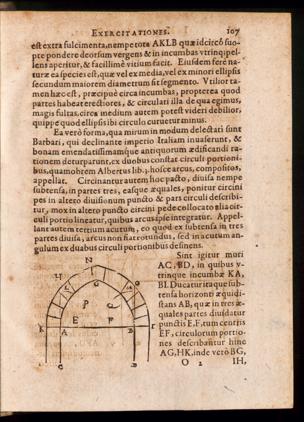 EXERCITATIONES. 107
est extra fulcimenta, nempe tota AKLB quæ idcircò suo-
pte pondere deorsum vergens & in incumbas vtrinq; pel-
lens aperitur, & facillimè vitium facit. Eiusdem ferè na-
turæ ea species est, quæ vel ex media, vel ex minori ellipsis
secundum maiorem diametrum fit segmento. Vtilior ta-
men hæc est, præcipuè circa incumbas, propterea quod
partes habeat erectiores, & circulari illa de qua egimus,
magis fultas, circa medium autem potest videri debilior,
quippè quod ellipsis ibi circulo curuetur minus.
Ea verò forma, qua mirum in modum delectati sunt
Barbari, qui declinante imperio Italiam inuaserunt, &
bonam emendatissimamque antiquorum ædificandi ra-
tionem deturparunt, ex duobus constat circuli portioni-
bus, quamobrem Albertus lib. 3. hosce arcus, compositos,
appellat. Circinantur autem hoc pacto, diuisa nempe
subtensa, in partes tres, easque æquales, ponitur circini
pes in altero diuisionum puncto & pars circuli describi-
tur, mox in altero puncto circini pede collocato alia cir-
culi portio lineatur, quibus arcus ipse integratur. Appel-
lant autem tertium acutum, eo quòd ex subtensa in tres
partes diuisa, arcus non fiat rotundus, sed in acutum an-
gulum ex duabus circuli portionibus desinens.
Sint igitur muri
AC, BD, in quibus v-
trinque incumbæ KA,
BI. Ducatur itaque sub-
tensa horizonti æquidi-
stans AB, quæ in tres æ-
quales partes diuidatur
punctis E, F, tum centris
EF, circulorum portio-
nes describantur hinc
AG, HK, inde verò BG,
O 2 IH,
N
H
G
P
C
E
F
K
A
B
C